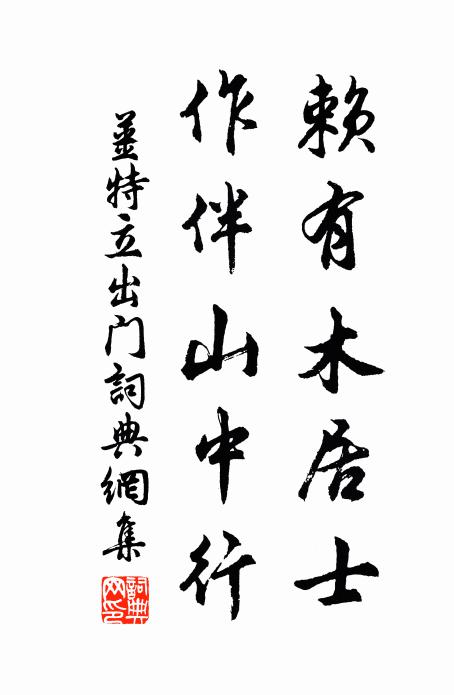 賴有木居士
作伴山中行
姜特立出門詞典網集
詞典网印